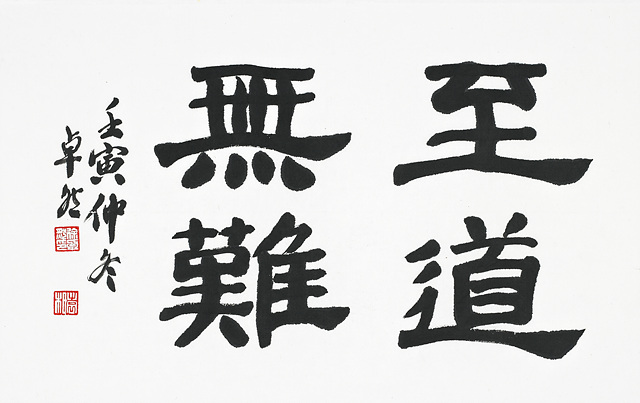 至道
無難
壬寅仲冬
卓然